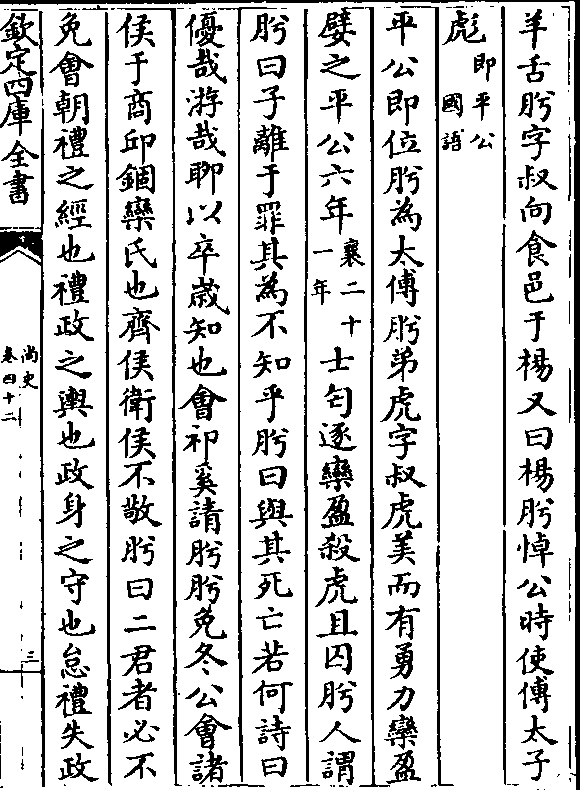 羊舌肸字叔向食邑于楊又曰楊肸悼公時使傅太子
彪即平公國語
平公即位肸為太傅肸弟虎字叔虎美而有勇力欒盈
嬖之平公六年襄二十一年士匄逐欒盈殺虎且囚肸人謂
肸曰子離于罪其為不知乎肸曰與其死亡若何詩曰
優哉游哉聊以卒歲知也會祁奚請肸肸免冬公會諸
侯于商邱錮欒氏也齊侯衛侯不敬肸曰二君者必不
免會朝禮之經也禮政之輿也政身之守也怠禮失政
欽定四庫全書
尚史
卷四十二
三